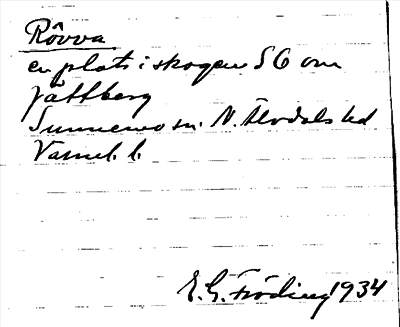 Rôvva
en plats i skogen SO om
Jättberg
Sunnemo sn. N. Älvdals hd
Värml. l.
E. G. Fröding 1934